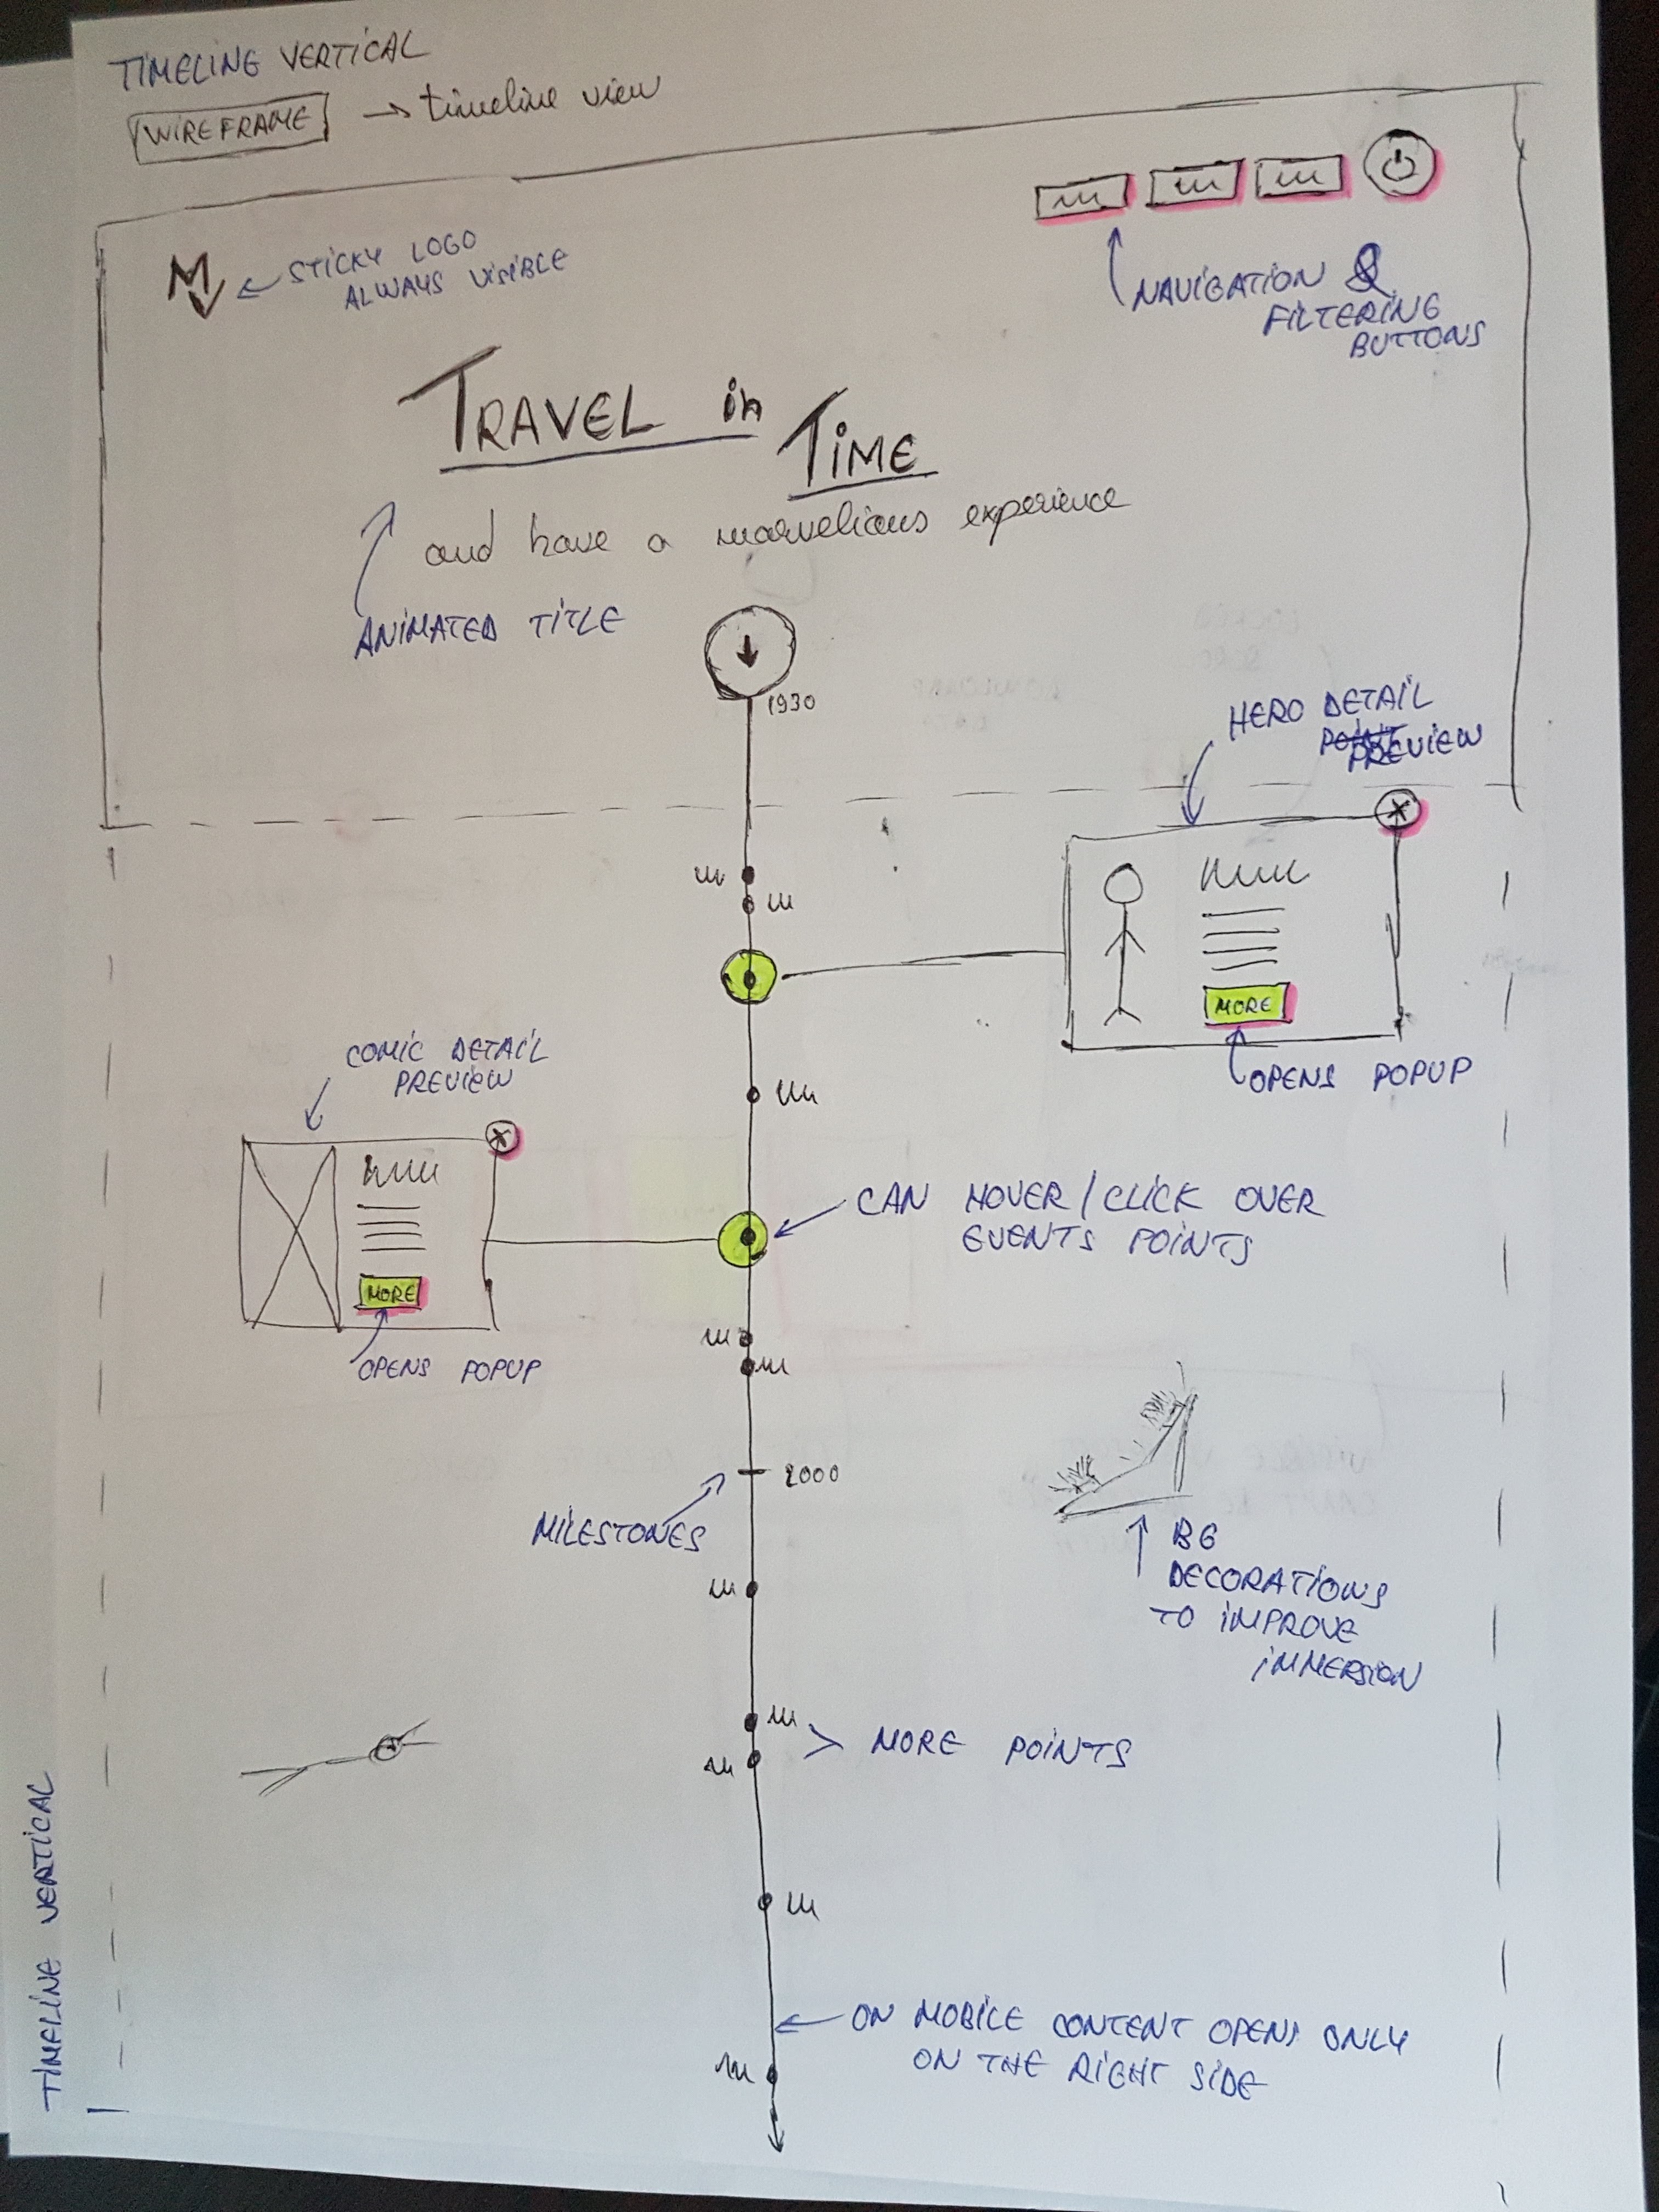 TIMELINE VERTICAL
WIREFRAME → timeline view
STICKY LOGO
ALWAYS VISIBLE
NAVIGATION &
FILTERING
BUTTONS
TRAVEL in
TIME
and have a marvelious experience
ANIMATED TITLE
1930
HERO DETAIL
PREVIEW
MORE
OPENS POPUP
COMIC DETAIL
PREVIEW
MORE
OPENS POPUP
CAN HOVER/CLICK OVER
EVENTS POINTS
2000
MILESTONES
BG
DECORATIONS
TO IMPROVE
IMMERSION
MORE POINTS
ON MOBILE CONTENT OPENS ONLY
ON THE RIGHT SIDE
TIMELINE VERTICAL